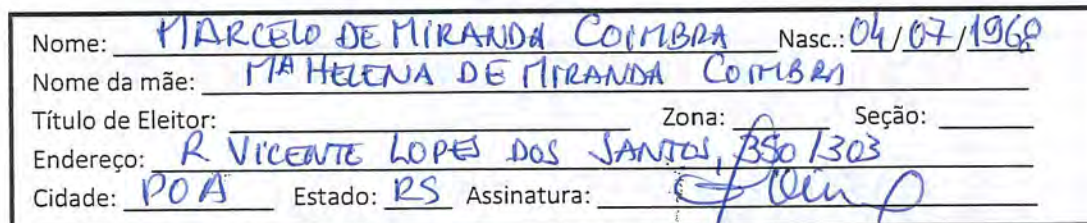 Nome: MARCELO DE MIRANDA COIMBRA Nasc.: 04/07/1968
Nome da mãe: Mª HELENA DE MIRANDA COIMBRA
Título de Eleitor: Zona: Seção:
Endereço: R VICENTE LOPES DOS SANTOS, 350/303
Cidade: POA Estado: RS Assinatura: